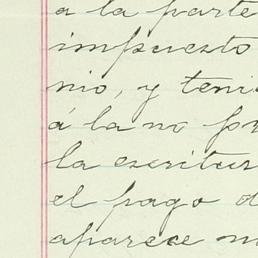 á la parte
impuesto
nio, y teni
á la no pr
la escritur
el pago d
aparece m